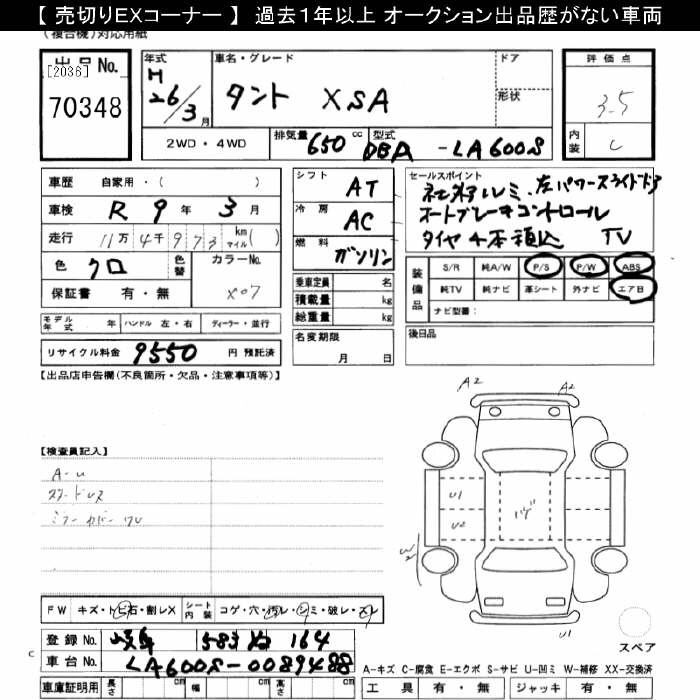 【 売切りEXコーナー 】 過去1年以上 オークション出品歴がない車両
(複合機)対応用紙
出品 No.
[2036]
70348
年式
H
26/3月
車名・グレード
タント XSA
ドア
形状
評価点
3.5
内装
C
2WD・4WD
排気量 650 cc
型式 DBA -LA600S
車歴 自家用・( )
車検 R 9年 3月
走行 11万4千973 km マイル( )
色 クロ
色替
カラーNo.
X07
保証書 有・無
シフト AT
冷房 AC
燃料 ガソリン
セールスポイント
社外アルミ、左パワースライドドア
オートブレーキコントロール
タイヤ4本積込 TV
装備品
S/R 純A/W P/S P/W ABS
純TV 純ナビ 革シート 外ナビ エアB
ナビ型番:
乗車定員 名
積載量 kg
総重量 kg
モデル年式 年 ハンドル 左・右 ディーラー・並行
名変期限
月 日
後日品
リサイクル料金 9550 円 預託済
【出品店申告欄(不良箇所・欠品・注意事項等)】
A2 A2
【検査員記入】
A-U
スペアードレス
ミラーカバーワレ
U1
U2
ハゲ
W2
U1
スペア
FW キズ・トビ石・割レX
シート内装 コゲ・穴・汚レ・シミ・破レ・スレ
登録 No. 岐阜 583 ぬ 164
車台 No. LA600S-0089488
C
車庫証明用 長さ cm 幅 cm 高さ cm
A-キズ C-腐食 E-エクボ S-サビ U-凹ミ W-補修 XX-交換済
工具 有・無 ジャッキ 有・無